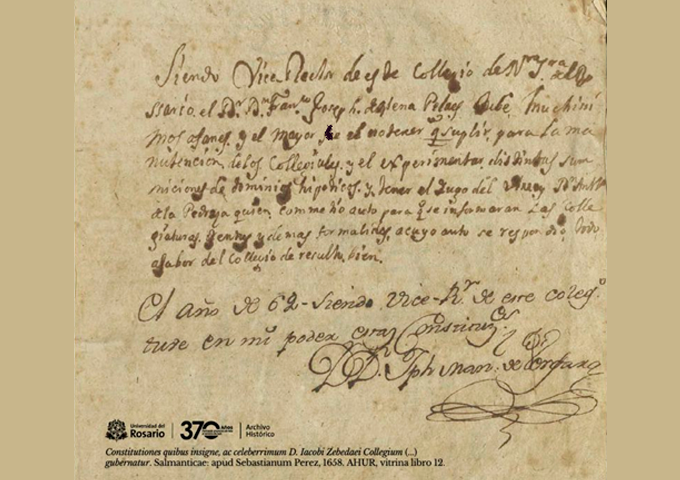 Siendo Vice Rector de este Collegio de Nra Sra del Ro
sario, el Dr Dn Franco Joseph. de Pelaez tube, muchini
mos afanes, y el mayor fue el no tener q suplir, para la ma
nutencion, de los Collegiales, y el experimentar, distintas sum
miciones de dominios hipoticos, y tener el Jugo del Virrey Dn Anto
de la Pedroza quien, comme tio auto para q se informaran las Colle
giaturas, Rentas y demas formalidades, a cuyo auto se respondio, todo
a fabor del Collegio de resulta, bien.
El año de 62 - siendo Vice-Rr de este colego
tube en mi poder estas Constituces
DDr Jph Man: de
Universidad del
Rosario
370 Años
Archivo
Histórico
Constitutiones quibus insigne, ac celeberrimum D. Iacobi Zebedaei Collegium (...)
gubernatur. Salmanticae: apud Sebastianum Perez, 1658. AHUR, vitrina libro 12.